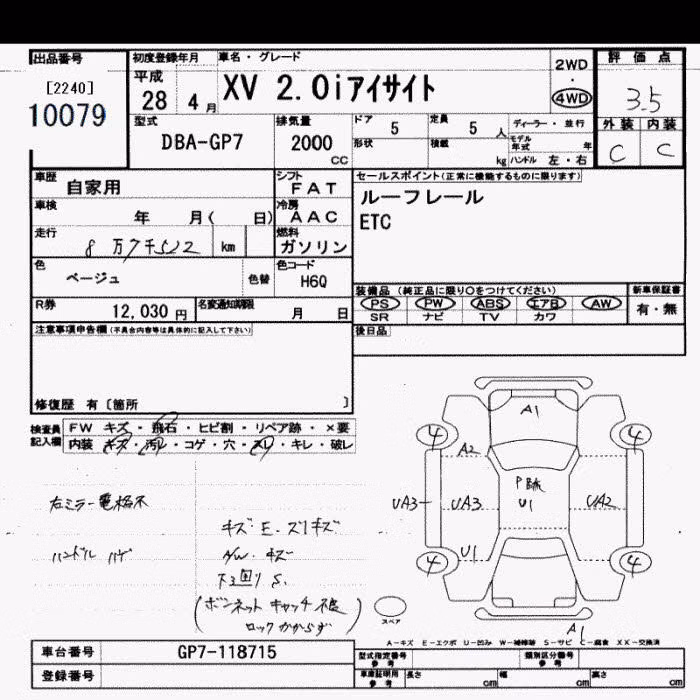 出品番号 初度登録年月 車名・グレード 2WD 評価点
[2240] 平成 XV 2.0iアイサイト ・ 3.5
10079 28 4月 4WD 外装 内装
型式 排気量 ドア 定員 ディーラー・並行 C C
DBA-GP7 2000 CC 5 5 人 モデル年式 年
形状 積載 kg ハンドル 左・右
車歴 自家用 シフト FAT セールスポイント(正常に機能するものに限ります)
車検 年 月( 日) 冷房 AAC ルーフレール
走行 8万7千522 km 燃料 ガソリン ETC
色 ベージュ 色替 色コード H6Q
装備品(純正品に限り○をつけてください) 新車保証書
R券 12,030円 名変通知期限 月 日 PS PW ABS エアB AW 有・無
SR ナビ TV カワ
注意事項申告欄(不具合内容等は具体的に記入して下さい) 後日品
修復歴 有[箇所 ]
検査員記入欄 FW キズ・飛石・ヒビ割・リペア跡・×要
内装 キズ・汚レ・コゲ・穴・スレ・キレ・破レ
A1
4 4
A2
P跡
UA3 UA3 U1 UA2
U1
4 4
A1
右ミラー電格不
キズE・スリキズ
ハンドル ハゲ A/W・キズ
下回りS.
(ボンネットキャッチ不良
ロックかからず)
スペア
A-キズ E-エクボ U-凹み W-補修跡 S-サビ C-腐食 XX-交換済
車台番号 GP7-118715 型式指定番号参考 類別区分番号参考
登録番号 車庫証明用参考 長さ cm 幅 cm 高さ cm